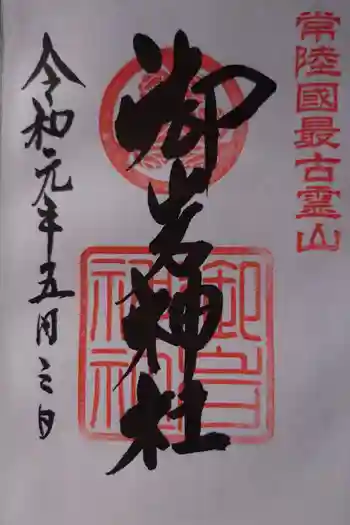 常陸國最古霊山
御岩神社
御岩神社
令和元年五月三日